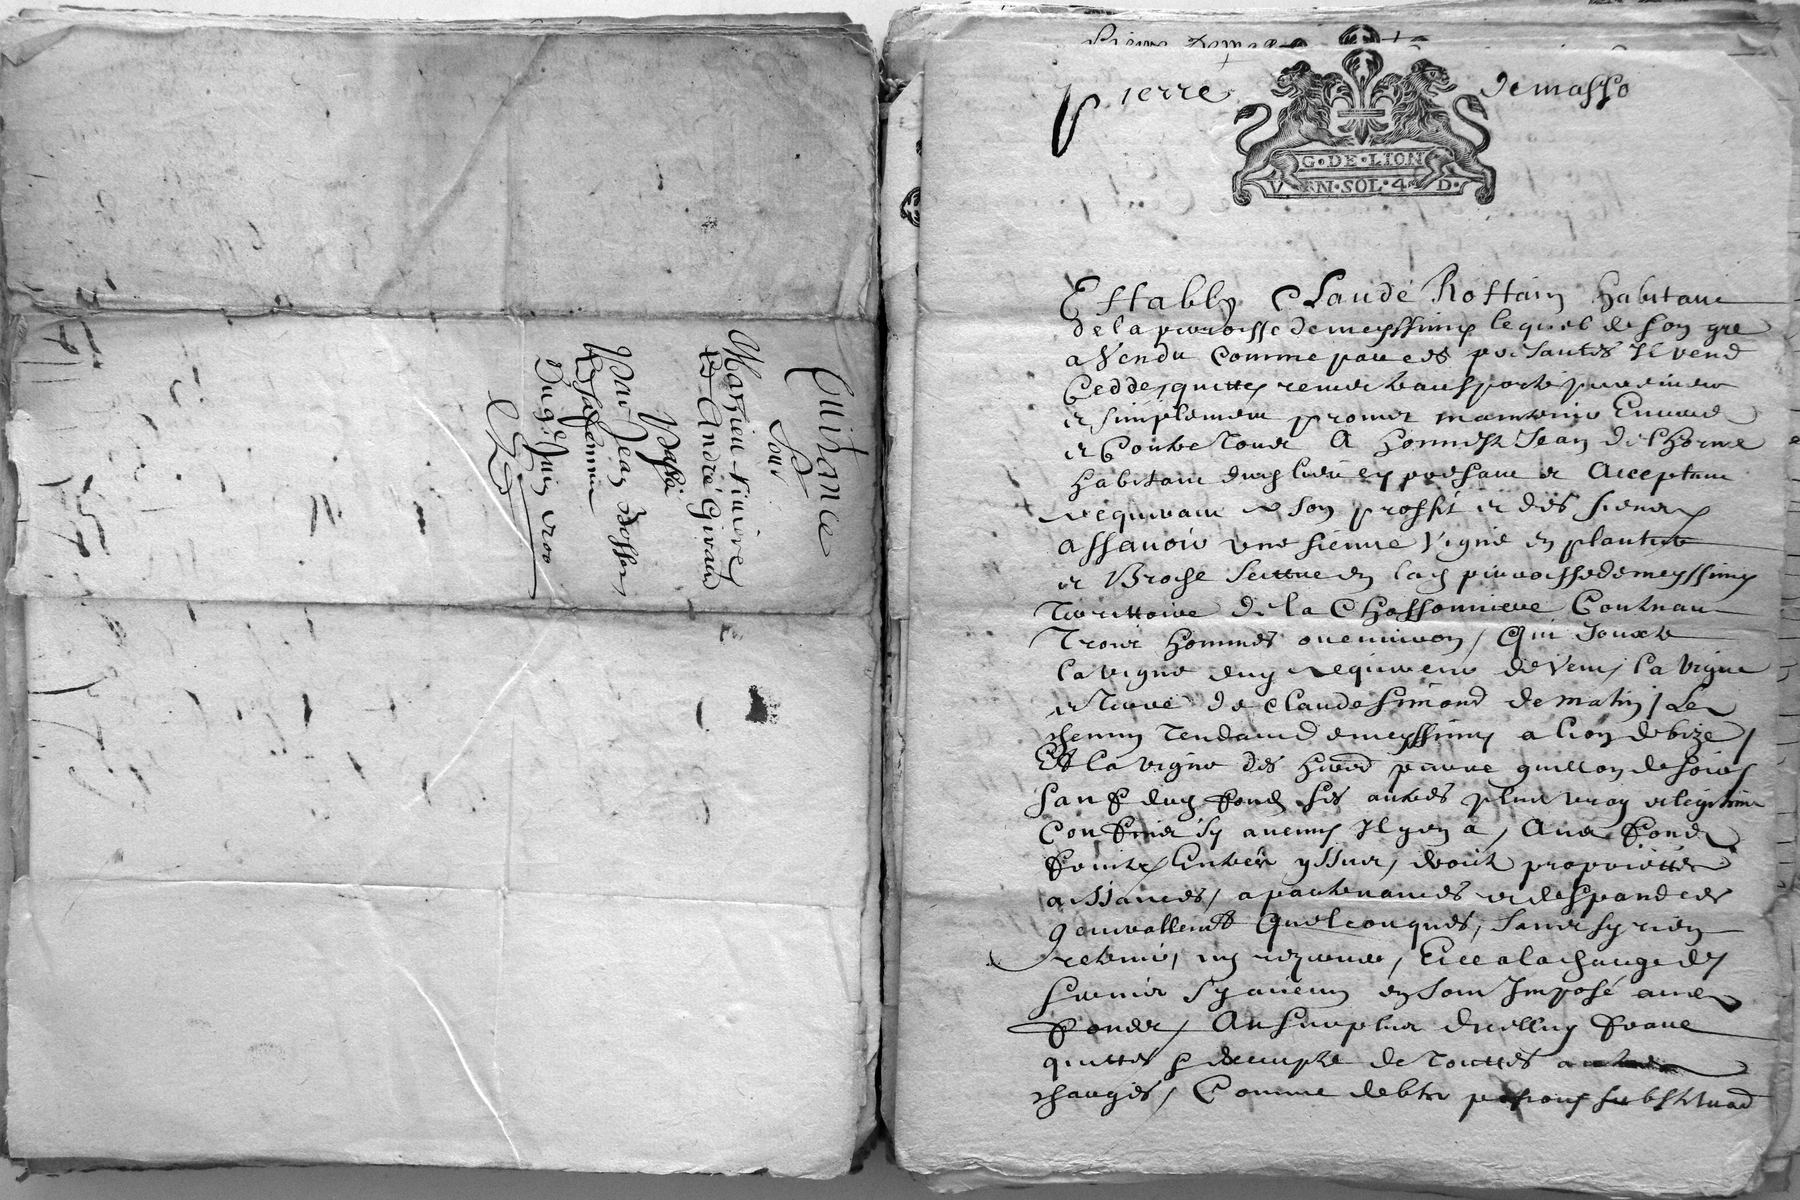 Quitance
Pour
Mathieu
& André Giraud
Passé
Par Jean
Du 9e Juin
Pierre demasso
G·DE·LION
VN·SOL·4·D·
Establÿ Claude Rostain habitant
de la parroisse de meyssimy lequel de son gre
a Vendu Comme par ces presantes Il vend
Cedde, quitte, remet transporte purement
et simplement promet maintenir Envers
et Contre Tous A honneste Jean de lhorme
habitant dud lieu cy presant et Acceptant
acquerant a son proffit et des siens
assavoir une sienne vigne en plantier
et Broche scittuee en lad parroisse de meyssimy
Territtoire de la Chassonniere Contenant
Trois hommes ou environ, Qui Jouxte
la vigne dud acquereur de vent, la vigne
et Terre de Claude Simond de matin, Le
chemin Tendant de meyssimy a lion de bize,
Et la vigne des pierre de soir
sauf dud fond ses autres plus vray et legitime
Confins sy aucuns Il y en a, Avec fonds
fruits, Entrées yssues, droits proprietés
aissances, apartenances et despandces
quelconques, sans sy rien
retenir, ny rezerver, Et ce a la charge des
servis sy aucuns en sont Imposé aud
fonds, Au surplus Icelluy franc
quitte & exempte de Touttes
charges, Comme debtes pansions substituaõ